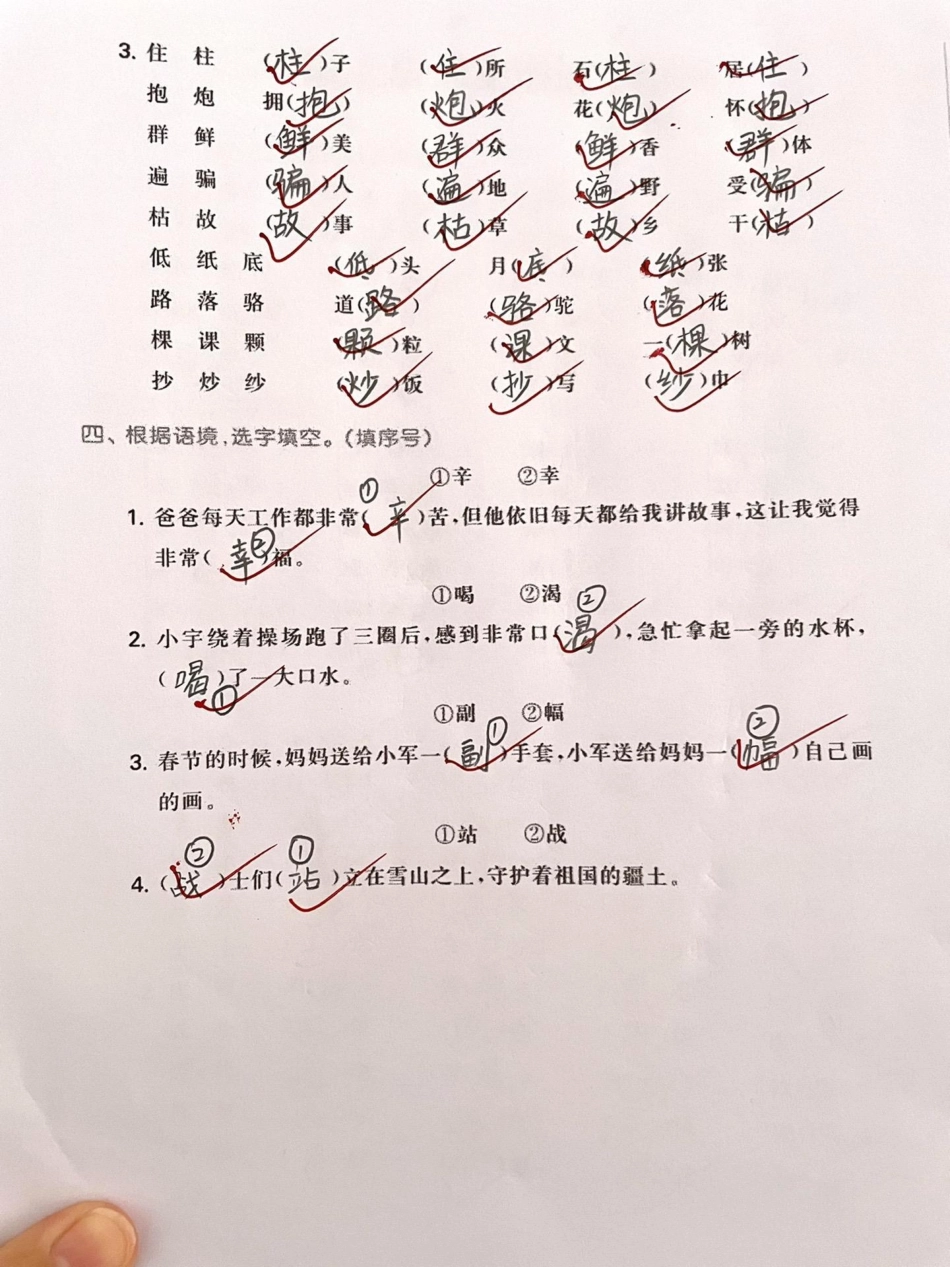 3. 住 柱 (柱)子 (住)所 石(柱) 居(住)
抱 炮 拥(抱) (炮)火 花(炮) 怀(抱)
群 鲜 (鲜)美 (群)众 (鲜)香 (群)体
遍 骗 (骗)人 (遍)地 (遍)野 受(骗)
枯 故 (故)事 (枯)草 (故)乡 干(枯)
低 纸 底 (低)头 月(底) (纸)张
路 落 骆 道(路) (骆)驼 (落)花
棵 课 颗 (颗)粒 (课)文 一(棵)树
抄 炒 纱 (炒)饭 (抄)写 (纱)巾
四、根据语境,选字填空。(填序号)
①辛 ②幸
①
1. 爸爸每天工作都非常(辛)苦,但他依旧每天都给我讲故事,这让我觉得
非常(幸②)福。
①喝 ②渴
②
2. 小宇绕着操场跑了三圈后,感到非常口(渴),急忙拿起一旁的水杯,
(喝)了一大口水。
①
①副 ②幅
① ②
3. 春节的时候,妈妈送给小军一(副)手套,小军送给妈妈一(幅)自己画
的画。
①站 ②战
② ①
4. (战)士们(站)立在雪山之上,守护着祖国的疆土。